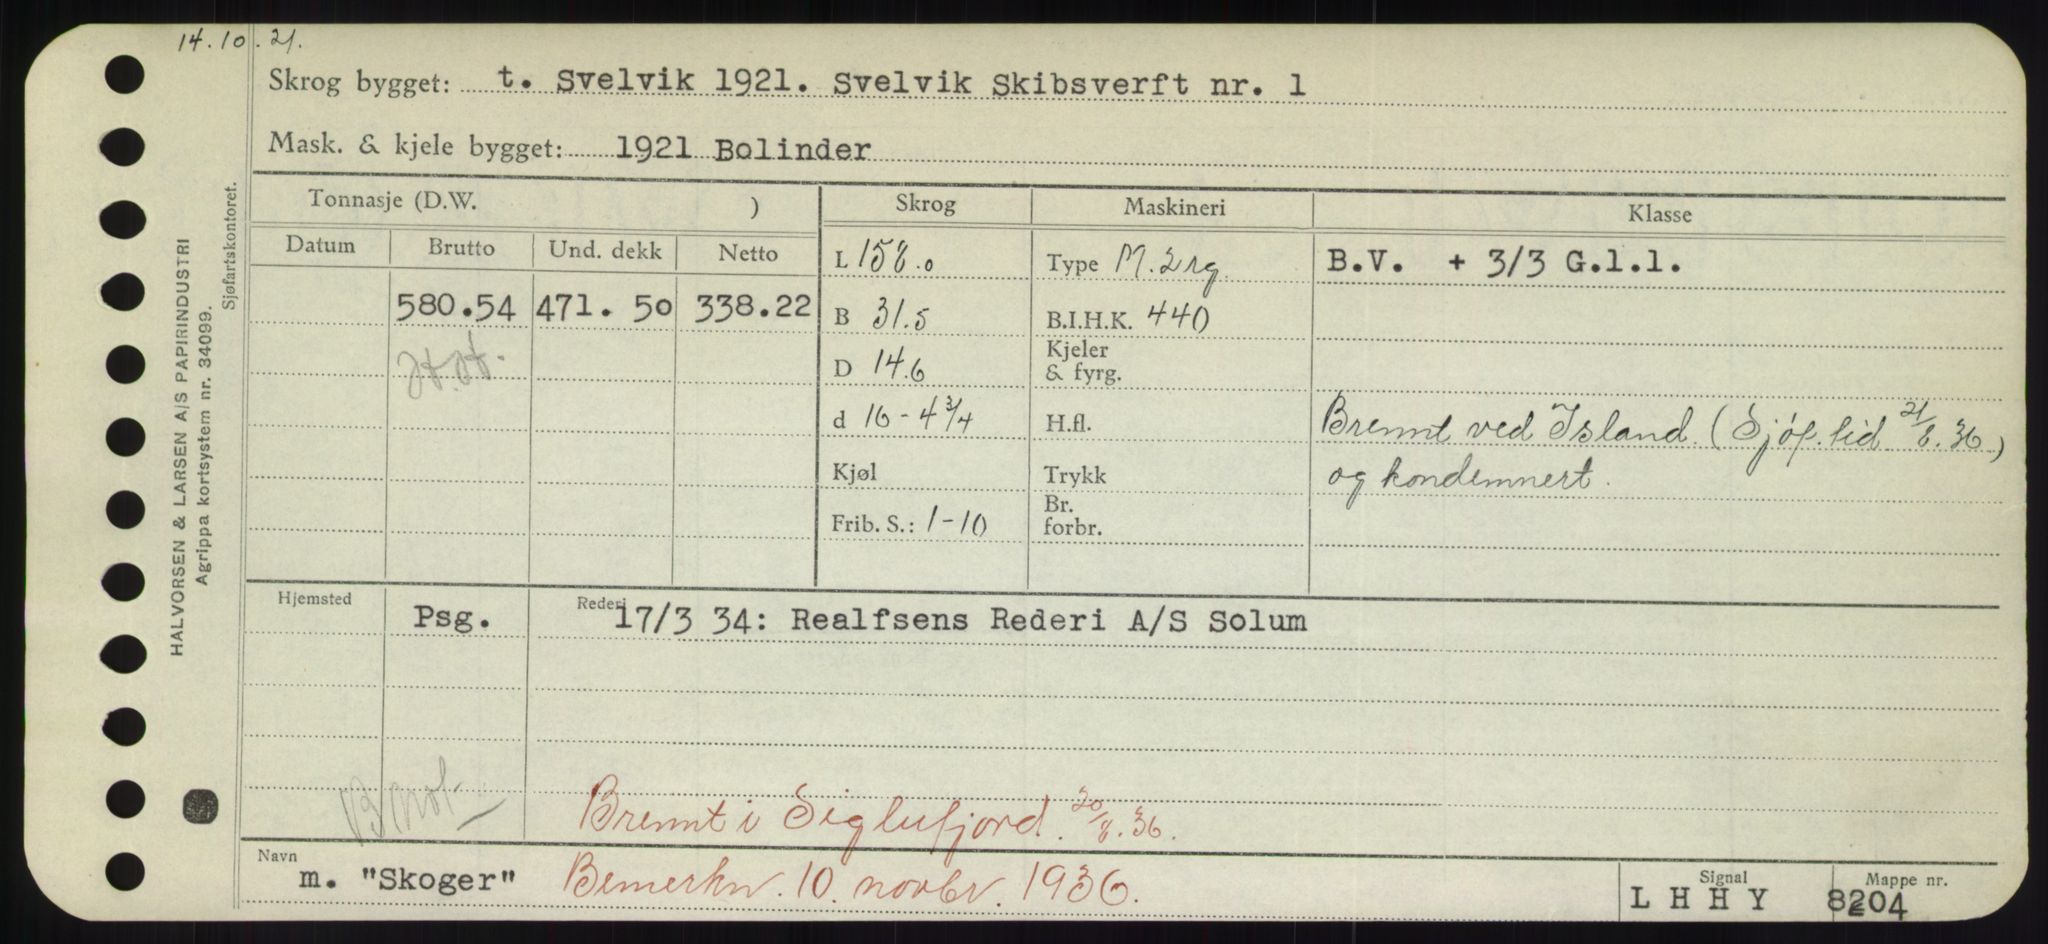 14.10.21.
Skrog bygget: t. Svelvik 1921. Svelvik Skibsverft nr. 1
Mask. & kjele bygget: 1921 Bolinder
Tonnasje (D.W. ) Skrog Maskineri Klasse
Datum Brutto Und. dekk Netto L 158.0 Type M. 2rg. B.V. + 3/3 G.l.l.
580.54 471. 50 338.22 B 31.5 B.I.H.K. 440
D 14.6 Kjeler & fyrg.
d 16 - 4 3/4 H.fl. Brennt ved Island (Sjøf. tid 21/8. 36)
Kjøl Trykk og kondemnert.
Frib. S.: 1-10 Br. forbr.
Hjemsted Psg. Rederi 17/3 34: Realfsens Rederi A/S Solum
Brennt i Siglufjord. 20/8. 36.
Navn m. "Skoger" Bemerkn. 10. novbr. 1936. Signal L H H Y Mappe nr. 8204
HALVORSEN & LARSEN A/S PAPIRINDUSTRI
Agrippa kortsystem nr. 34099.
Sjøfartskontoret.